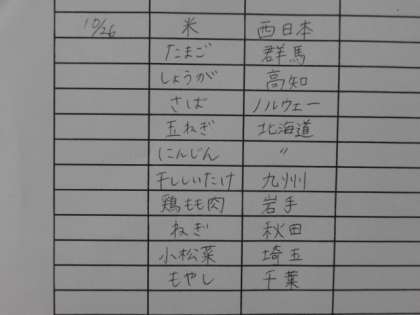 10/26 米 西日本
たまご 群馬
しょうが 高知
さば ノルウェー
玉ねぎ 北海道
にんじん 〃
干ししいたけ 九州
鶏もも肉 岩手
ねぎ 秋田
小松菜 埼玉
もやし 千葉